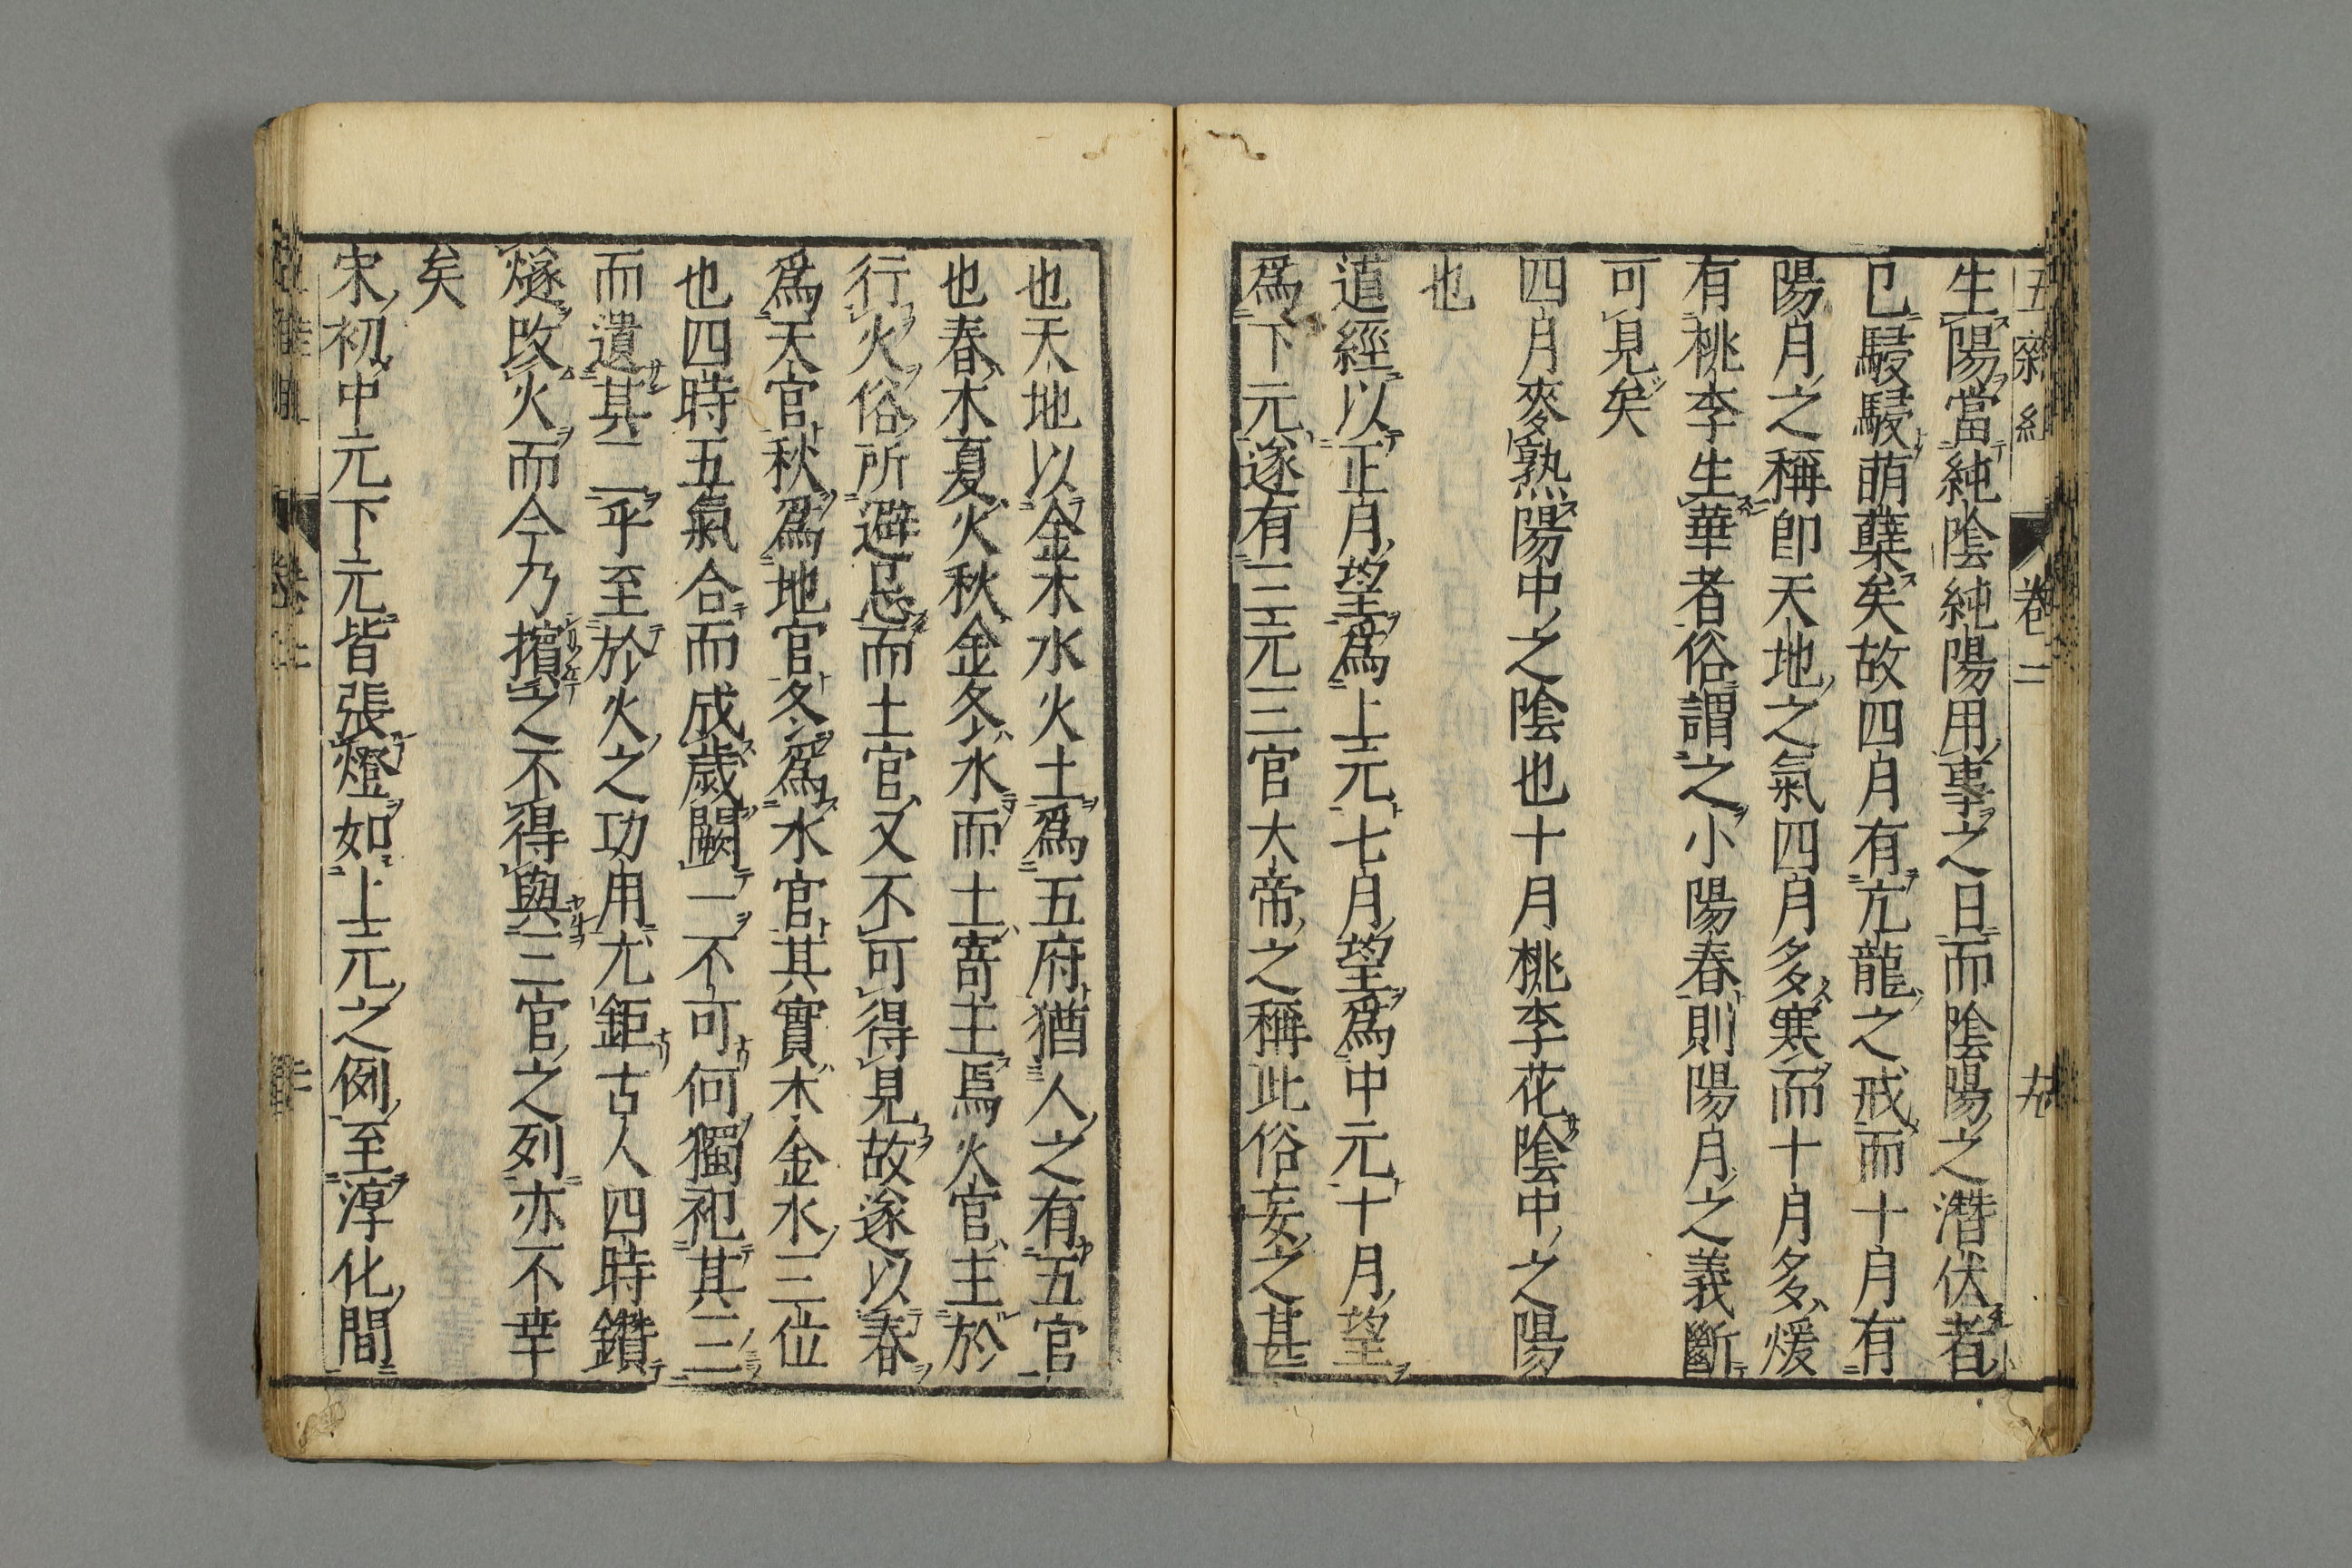 五雜組 卷二
生陽當純陰純陽用事之日而陰陽之潛伏者
已駸駸萌蘖矣故四月有亢龍之戒而十月有
陽月之稱卽天地之氣四月多寒而十月多煖
有桃李生華者俗謂之小陽春則陽月之義斷
可見矣
四月麥熟陽中之陰也十月桃李花陰中之陽
也
道經以正月望爲上元七月望爲中元十月望
爲下元遂有三元三官大帝之稱此俗妄之甚
也天地以金木水火土爲五府猶人之有五官
也春木夏火秋金冬水而土寄王焉火官主於
行火俗所避忌而土官又不可得見故遂以春
爲天官秋爲地官冬爲水官其實木金水三位
也四時五氣合而成歲闕一不可何獨祀其三
而遺其二乎至於火之功用尤鉅古人四時鑽
燧改火而今乃擯之不得與三官之列亦不幸
矣
宋初中元下元皆張燈如上元之例至淳化間